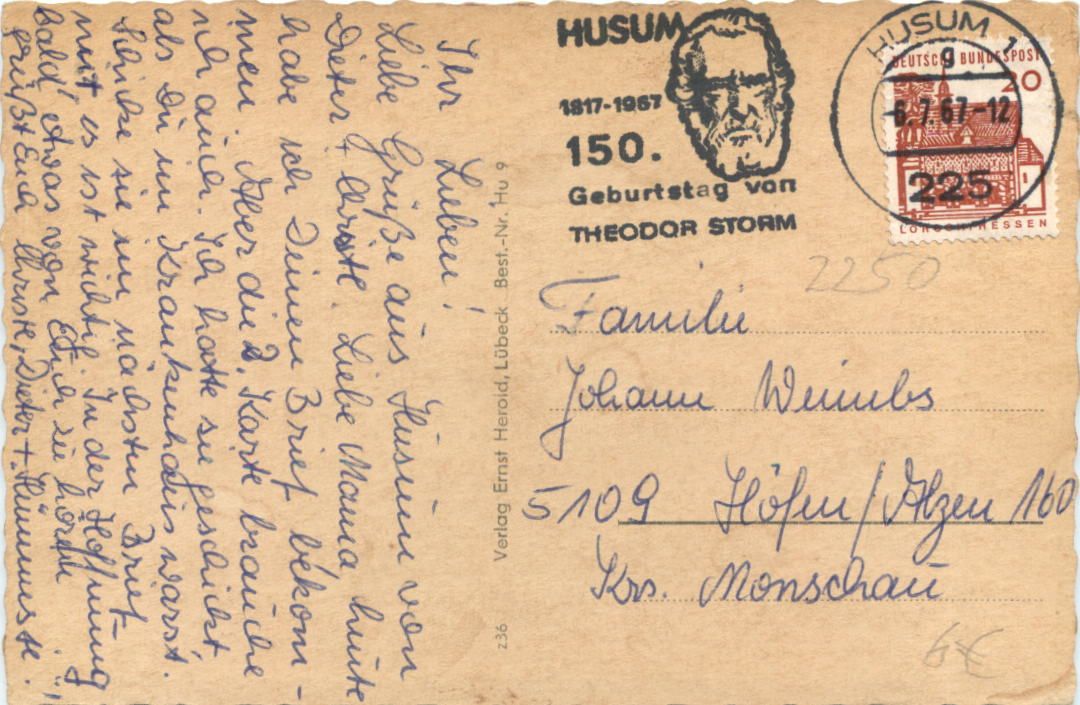 Ihr Lieben!
Liebe Grüße aus Husum von
Dieter + Christel. Liebe Mama, heute
habe ich Deinen Brief bekom-
men. Aber die 2. Karte brauche
ich auch. Ich hatte sie geschickt,
als Du im Krankenhaus warst.
Schicke sie im nächsten Brief
mit es ist wichtig. In der Hoffnung
bald etwas von Euch zu hören
grüßt Euch Christel, Dieter +
Verlag Ernst Herold, Lübeck Best.-Nr. Hu 9
z36
HUSUM
1817-1967
150.
Geburtstag von
THEODOR STORM
HUSUM 1
g
-6.7.67-12
225
DEUTSCHE BUNDESPOST
20
LORSCH HESSEN
2250
Familie
Johann Weimbs
5109 Höfen/Alzen 160
Krs. Monschau
6€